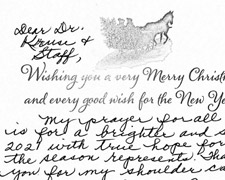 Dear Dr.
Kruse &
Staff,
Wishing you a very Merry Christm
and every good wish for the New Ye
My prayer for all
is for a brighter and s
2021 with true hope for
the season represents. Tha
you for my shoulder ca